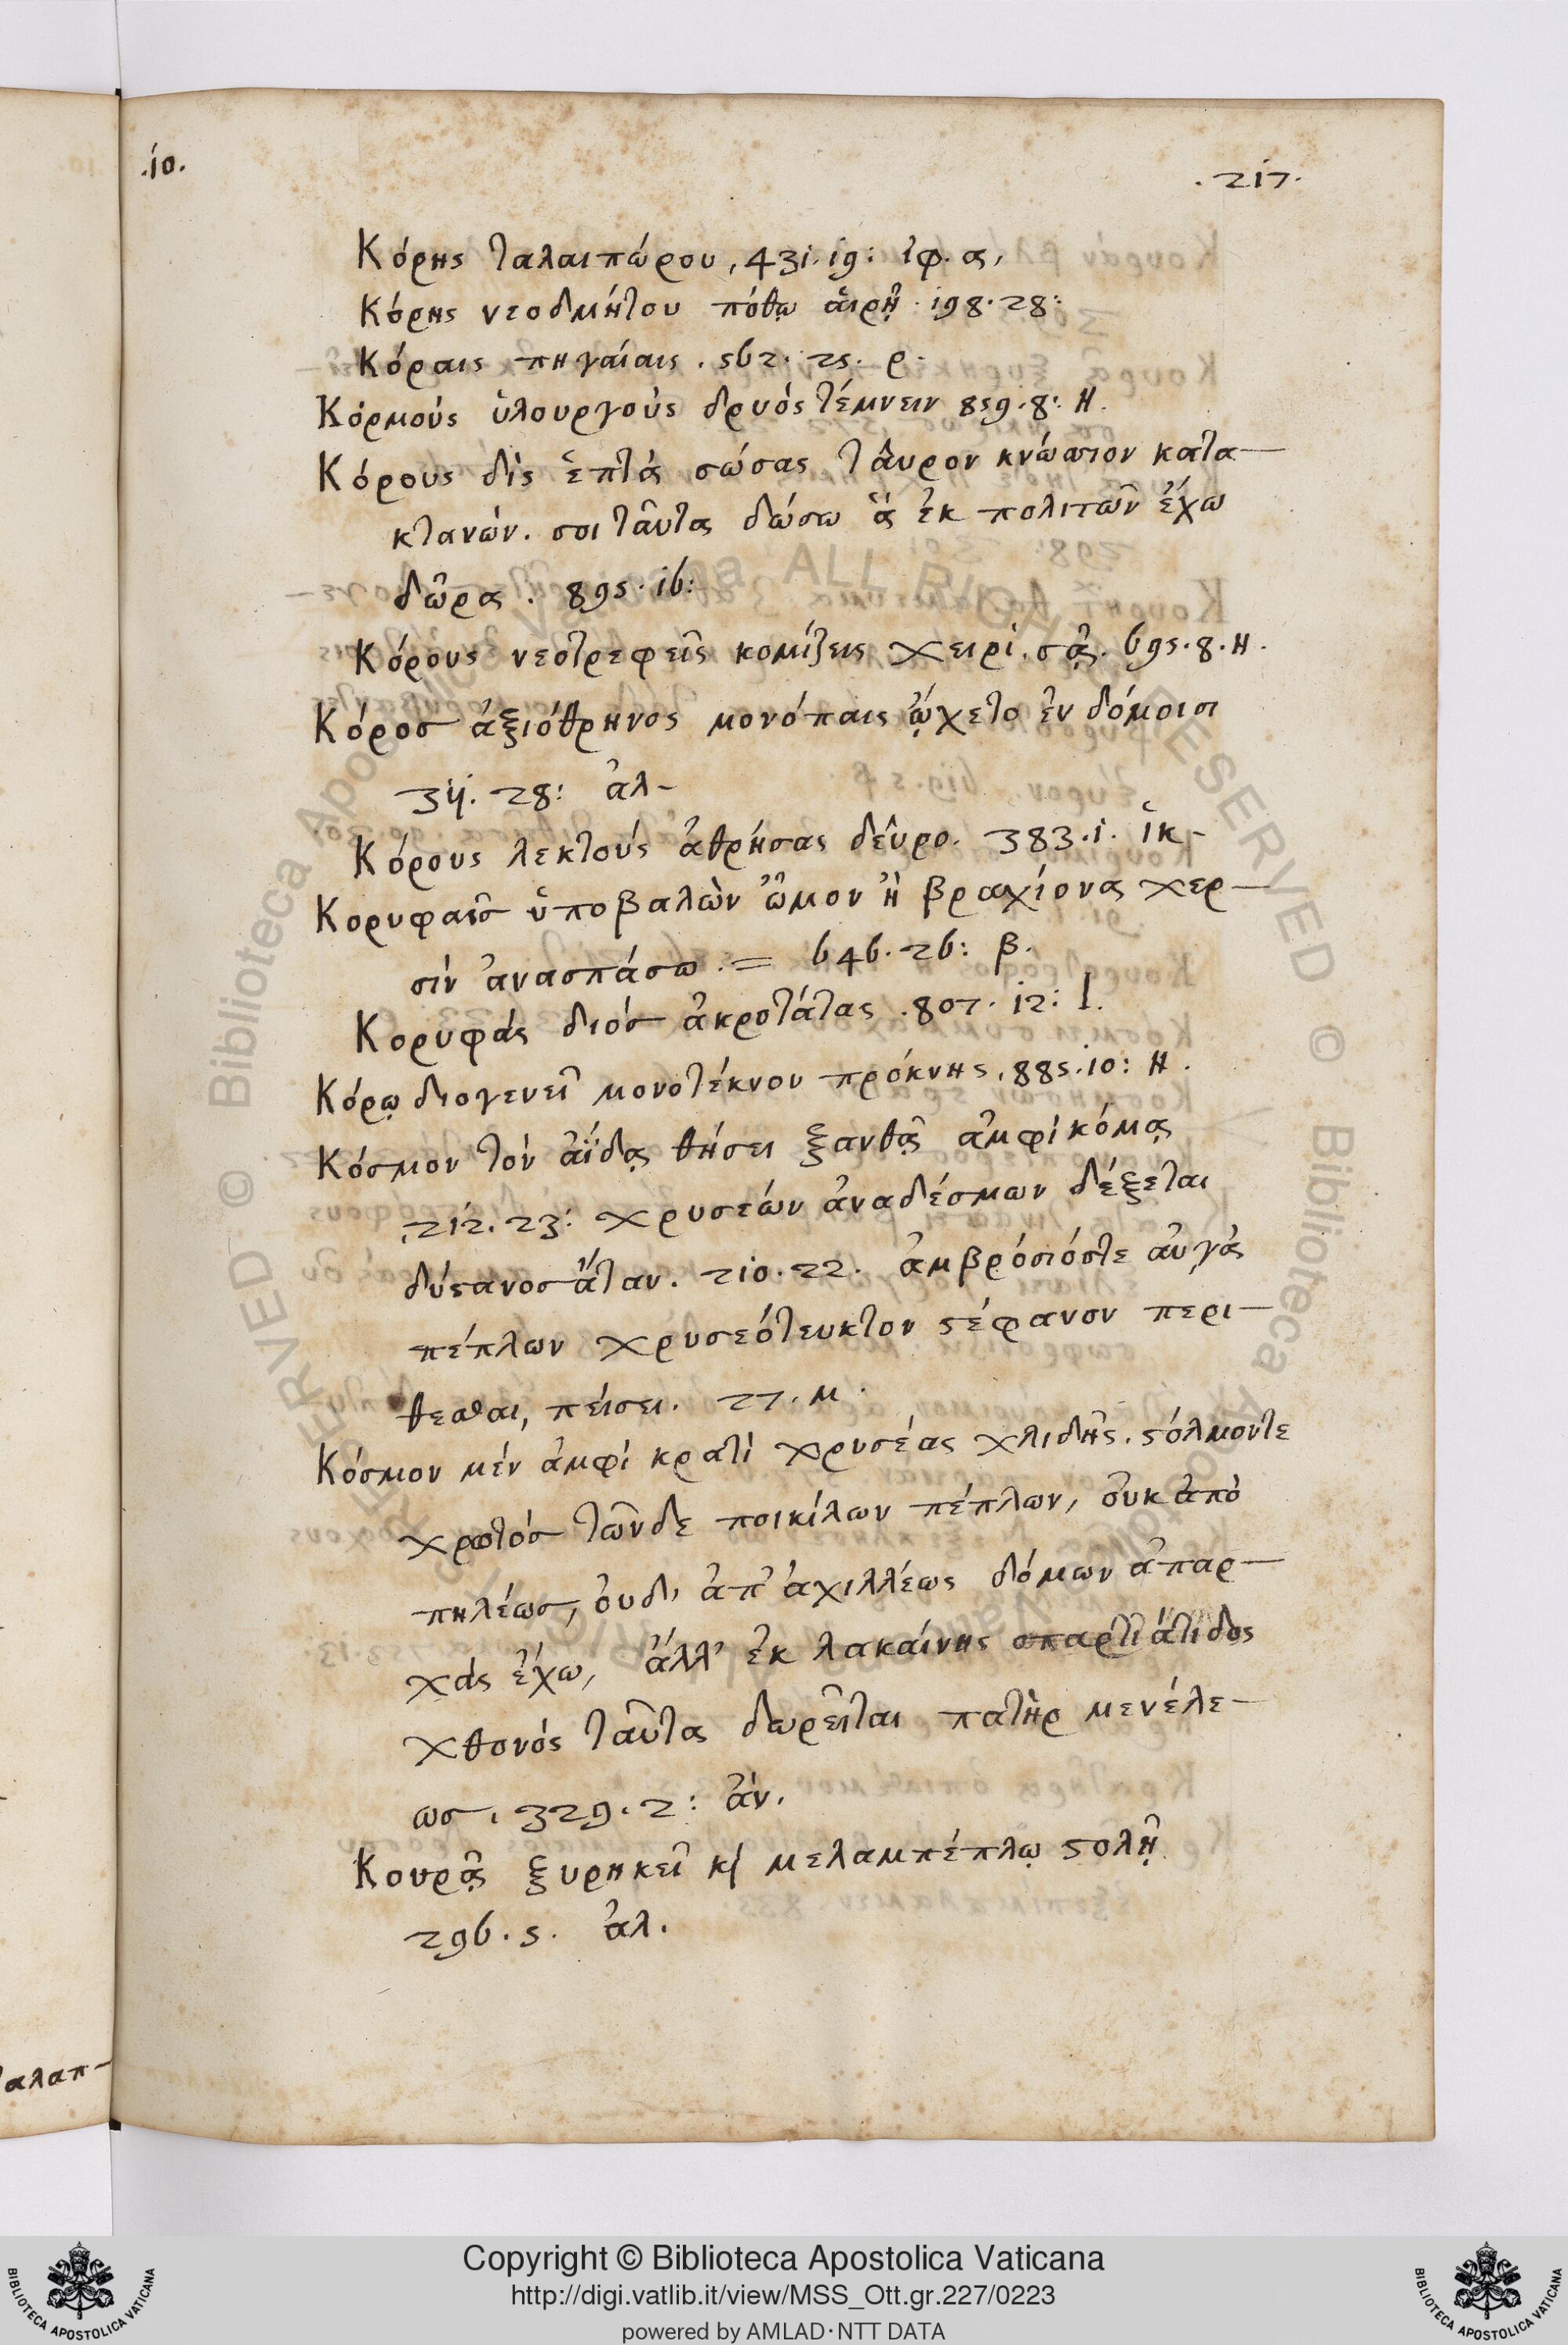 .io.
.217.
Κόρης ταλαιπώρου, 431.19: ἰφ. α,
Κόρης νεοδμήτου πόθῳ αἱρῇ. 198.28:
Κόραις πηγαίαις. 562. 25. ρ.
Κόρμους ὑλουργοὺς δρυὸς τέμνειν 859.8: Η.
Κόρους δὶς ἑπτὰ σώσας ταῦρον κνώσιον κατα-
κτανών. σοι ταῦτα δώσω ἃ ἐκ πολιτῶν ἔχω
δῶρα. 895. 16:
Κόρους νεοτρεφεῖς κομίζεις χειρὶ σᾷ. 695.8. Η.
Κόροσ ἀξιόθρηνος μονόπαις ᾤχετο ἐν δόμοισι
311. 28: ἀλ-
Κόρους λεκτοὺς ἀθρήσας δεῦρο. 383.1. ἱκ-
Κορυφαῖσ ὑποβαλὼν ὦμον ἢ βραχίονα χερ-
σὶν ἀνασπάσω. = 646. 26: β.
Κορυφὰς διόσ ἀκροτάτας. 807. 12: Ι.
Κόρῳ διογενεῖ μονοτέκνου πρόκνης, 885.10: Η.
Κόσμον τὸν ἀΐδα θήσει ξανθᾷ ἀμφὶ κόμᾳ
212. 23: χρυσεών ἀναδέσμων δέξεται
δύστανοσ ἄταν. 210. 22. ἀμβρόσιόστε αὐγὰ
πέπλων χρυσεότευκτον στέφανον περι-
θεσθαι, πείσει. 27. Μ.
Κόσμον μὲν ἀμφὶ κρατὶ χρυσέας χλιδῆς. στόλμοντε
χρωτόσ τῶνδε ποικίλων πέπλων, οὐκ ἀπὸ
πηλέωσ, οὐδ' ἀπ' ἀχιλλέως δόμων ἀπαρ-
χὰς ἔχω, ἀλλ' ἐκ λακαίνης σπαρτιάτιδος
χθονὸς ταῦτα δωρεῖται πατὴρ μενέλε-
ωσ. 329. 2: ἀν.
Κουρᾷ ξυρηκεῖ κὶ μελαμπέπλῳ στολῇ
296. 5. ἀλ.
αλαπ-
Copyright © Biblioteca Apostolica Vaticana
http://digi.vatlib.it/view/MSS_Ott.gr.227/0223
powered by AMLAD·NTT DATA